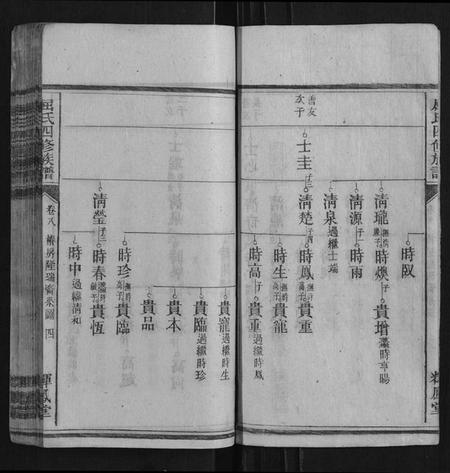 屈氏四修族譜
輝鳳堂
雪友
次子
士圭子三
時馭
清瓏
時煥
貴增
清源子一
時雨
清泉過繼士端
清楚子四
時鳳
貴重
時生
貴寵
時高
貴重過繼時鳳
貴寵過繼時生
貴臨過繼時珍
貴本
貴品
清瑩子三
時珍
貴臨
時春
貴恆
時中過繼清和
屈氏四修族譜
卷八
四
輝鳳堂